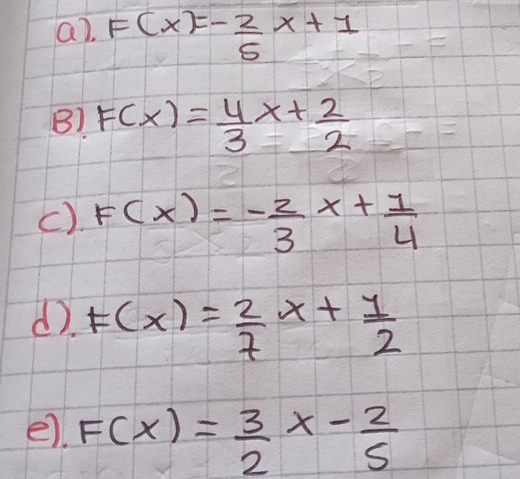 a). F(x)=-2/5 x+1
B). F(x)=4/3 x+2/2
c). F(x)=-2/3 x+1/4
d). F(x)=2/7 x+1/2
e). F(x)=3/2 x-2/5